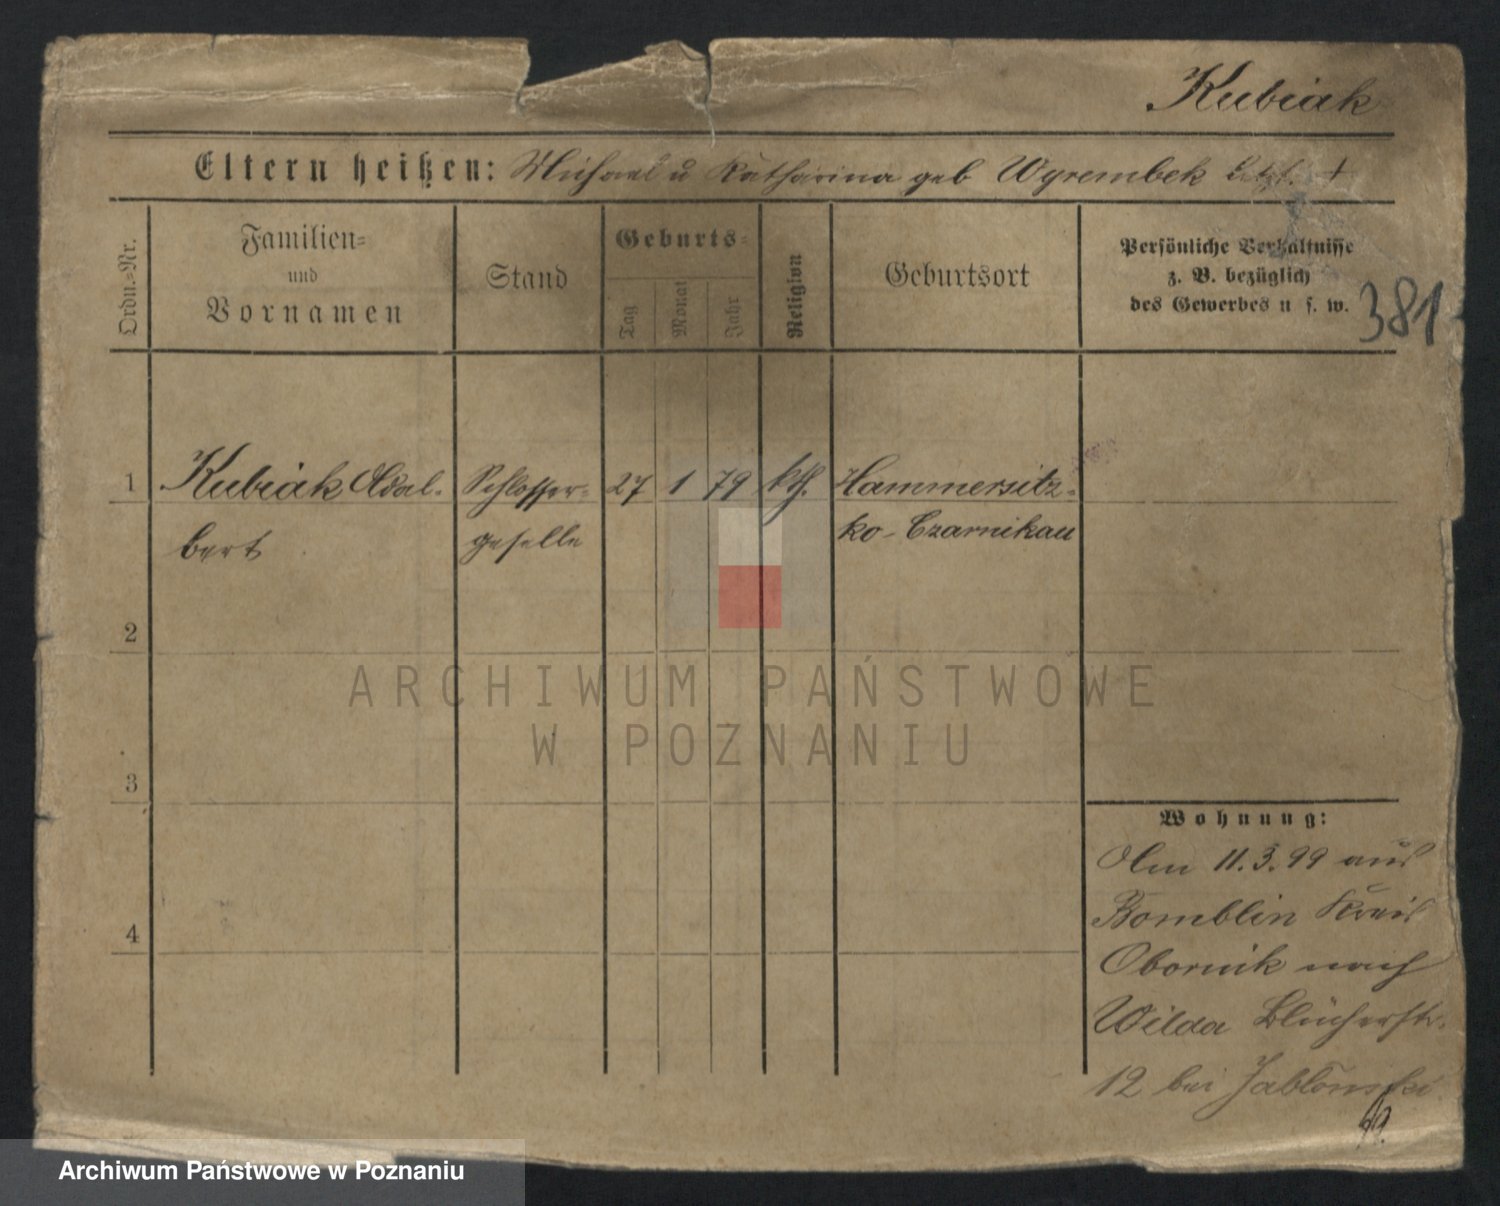 Kubiak
Eltern heißen: Michael u Katharina geb Wyrembek Letzt. +
Ordn.=Nr.
Familien=
und
Vornamen
Stand
Geburts=
Tag
Monat
Jahr
Religion
Geburtsort
Persönliche Verhältnisse
z. B. bezüglich
des Gewerbes u. s. w.
381
1 Kubiak Adal- Schlosser- 27 1 79 kth. Hammersitz-
bert geselle ko-Czarnikau
2
3
4
Wohnung:
Am 11.3.99 aus
Bomblin Kreis
Obornik nach
Wilda Blücherstr.
12 bei Jablonski
ARCHIWUM PAŃSTWOWE
W POZNANIU
Archiwum Państwowe w Poznaniu